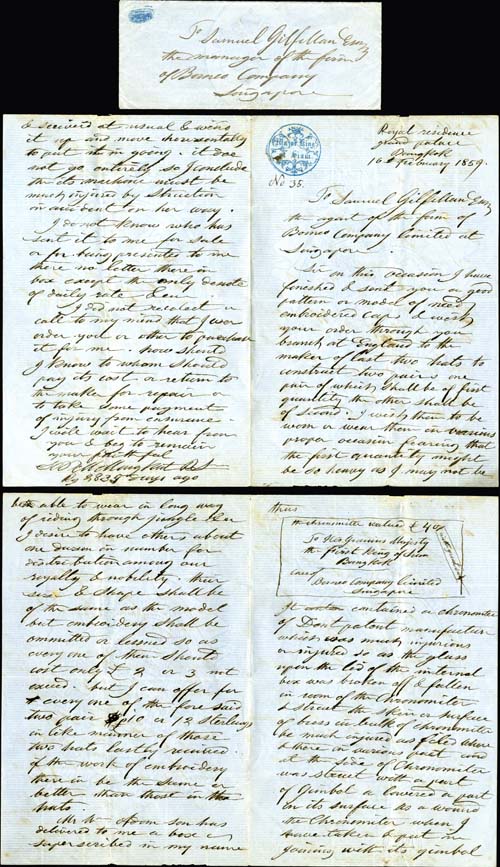 To Samuel Gilfillan Esqr
the manager of the firm
of Borneo Company
Singapore
Royal residence
grand palace
Bangkok
16th February 1859.
No 35.
To Samuel Gilfillan Esqr
the agent of the firm of
Borneo Company Limited at
Singapore.
Sir on this occasion I have
finished & sent you a good
pattern or model of
embroidered cap. I wish
your order through your
branch at England to the
maker of last two hats to
construct two pairs one
pair of which shall be of first
quantity the other shall be
of second. I wish them to be
worn or wear them in various
proper occasion fearing that
the first quantity might
be so heavy as I may not be
able to wear in long way
of riding through jungle &cu
I desire to have others about
one dozen in number for
distribution among our
royalty & nobility. their
size & shape shall be
of the same as the model
but embroidery shall be
ommitted or lessened so as
every one of them should
cost only £ 2 or 3 not
exceed. but I can offer for
every one of the fore said
two pair 10 or 12 sterlings
in like manner of those
two hats lastly received.
if the work of embroidery
there in be the same or
better than those in the
hats.
Mr Wm Adamson has
delivered to me a box
superscribed in my name
thus
chronometer valued £ 40/
To His Gracious Majesty
the first King of Siam
Bangkok
care of
Borneo Company Limited
Singapore
It contained a chronometer
of Dent patent manufactur
which was much injurious
or injured so as the glass
upon the lid of the internal
box was broken off & fallen
in room of the Chronometer
& struck the skin or surface
of brass in teeth of chronometer
be much injured as filed above
& there in various part and
at the side of Chronometer
was struck with a part
of Gimbol a lowered a part
on its surface as a wound
the Chronometer when I
have taken & put in
joining with its gimbol
& scrived at usual & wins
it up and move horizontally
to put it in going. it doe
not go entirely so I conclude
the its machine must be
much injured by struction
in accident on her way.
I do not know who has
sent it to me for sale
or for being presented to me
there no letter there in
box except the only denote
of daily rate &cu.
I did not recolect or
call to my mind that I ever
order you or other to purchase
it for me. how should
I know to whom should
pay its cost or return to
the maker for repair or
to take some payment
of injury from ensurance
I will wait to hear from
you & beg to remain
your faithful